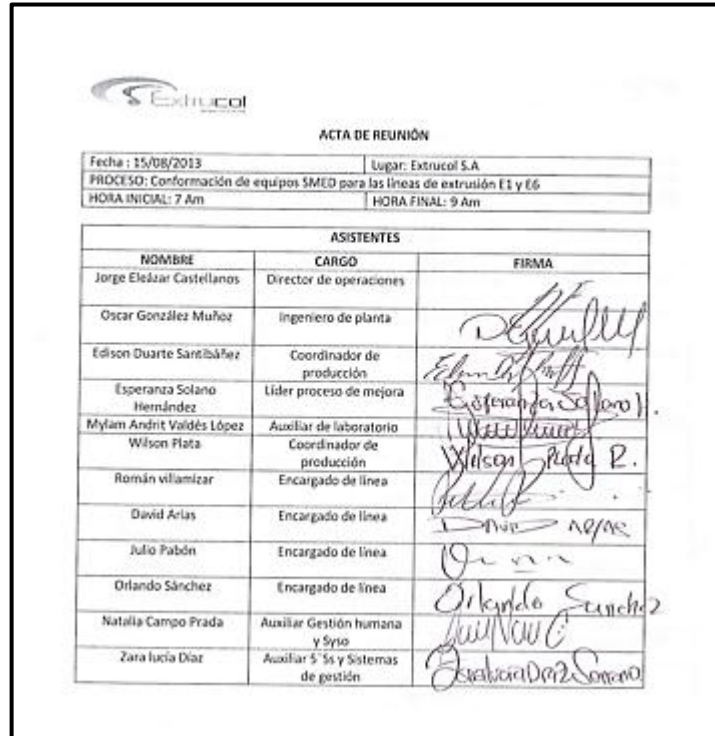 Extrucol
ACTA DE REUNIÓN
Fecha : 15/08/2013 Lugar: Extrucol S.A
PROCESO: Conformación de equipos SMED para las líneas de extrusión E1 y E6
HORA INICIAL: 7 Am HORA FINAL: 9 Am
ASISTENTES
NOMBRE CARGO FIRMA
Jorge Eleázar Castellanos Director de operaciones
Oscar González Muñoz Ingeniero de planta
Edison Duarte Santibáñez Coordinador de
producción
Esperanza Solano Líder proceso de mejora Esperanza Solano H.
Hernández
Mylam Andrit Valdés López Auxiliar de laboratorio
Wilson Plata Coordinador de Wilson Plata R.
producción
Román villamizar Encargado de línea
David Arias Encargado de línea David Arias
Julio Pabón Encargado de línea
Orlando Sánchez Encargado de línea Orlando Sanchez
Natalia Campo Prada Auxiliar Gestión humana
y Syso
Zara lucía Díaz Auxiliar 5`Ss y Sistemas
de gestión